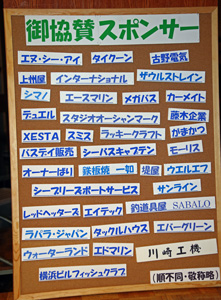 御協賛スポンサー
エヌ・シー・アイ タイクーン 古野電気
上州屋 インターナショナル ザウルストレイン
シマノ エースマリン メガバス カーメイト
デュエル スタジオオーシャンマーク 藤木企業
XESTA スミス ラッキークラフト がまかつ
バスデイ販売 シーバスキャプテン モーリス
オーナーばり 鉄板焼 一如 堤屋 ウエルエフ
シーブリーズボートサービス サンライン
レッドヘッターズ エイテック 釣道具屋 SABALO
ラパラ・ジャパン タックルハウス エバーグリーン
ウォーターランド エドマリン 川崎工機
横浜ビルフィッシュクラブ (順不同・敬称略)